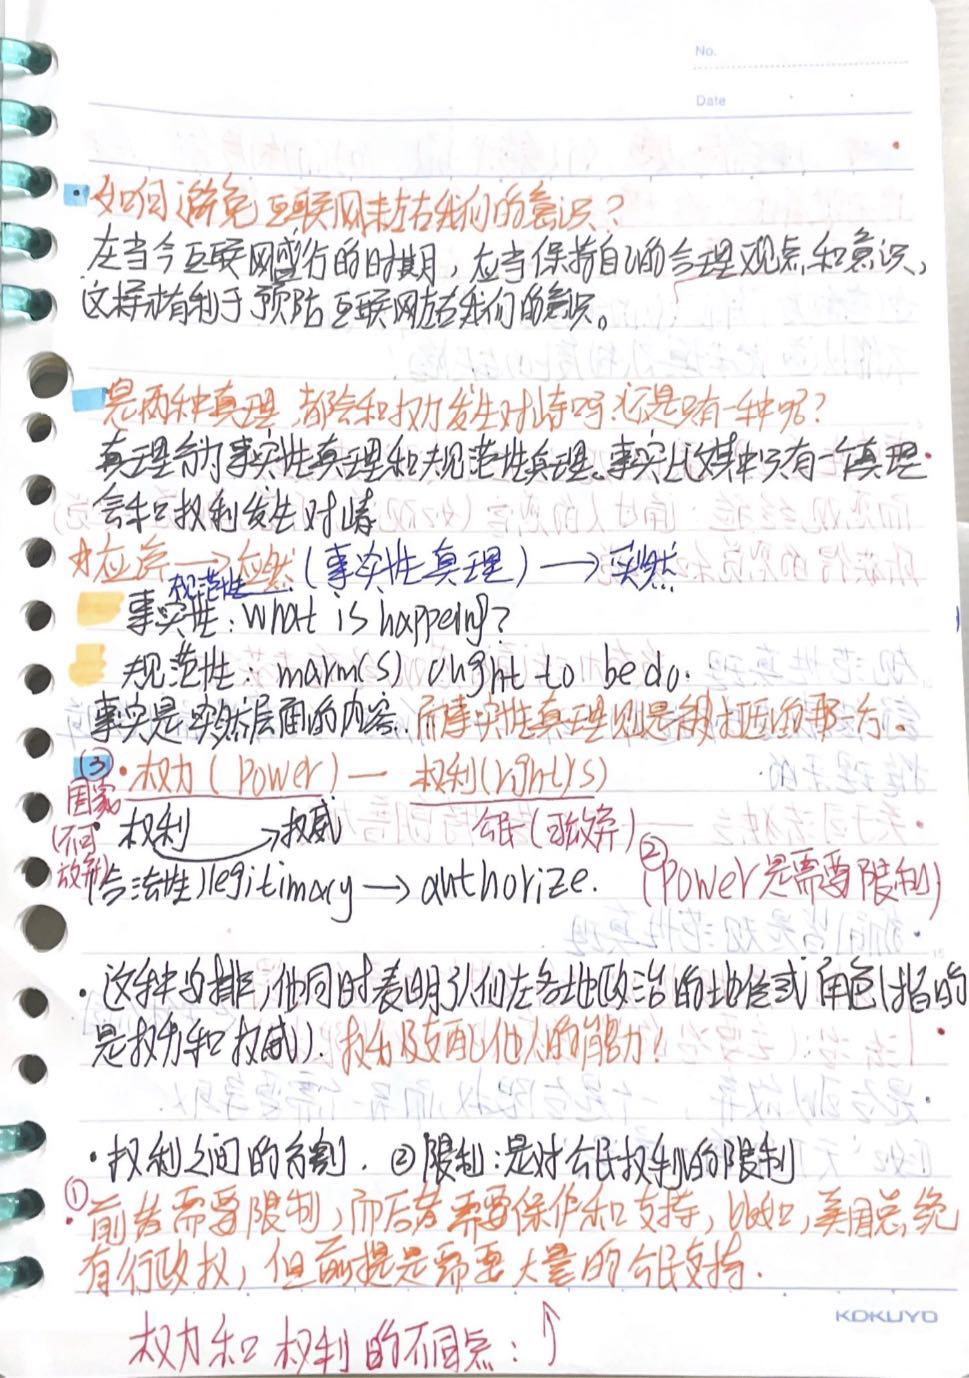 No.
Date
如何避免互联网来左右我们的意识?
在当今互联网盛行的时期,应当保持自己的合理观点和意识,
这样才有利于预防互联网左右我们的意识。
是两种真理 都会和权力发生对峙吗?还是只有一种呢?
真理分为事实性真理和规范性真理。事实上文其中只有一个真理
会和权利发生对峙
对应 → 应然 (事实性真理) → 实然
规范性
事实性: What is happeing?
规范性: marm(s) ought to be do.
事实是实然层面的内容. 而事实性真理则是被打压的那一方。
③ · 权力 (Power) — 权利(right/s)
国家 · 权利 → 权威 公民 (可放弃) ②
(不可放弃)
(合法性) legitimacy → authorize. (Power是需要限制)
· 这种安排,他同时表明人们在各地政治的地位或角色(指的
是权力和权威). 权力及支配他人的能力!
· 权利之间的分割. ② 限制: 是对公民权利的限制
①
· 前者需要限制,而后者需要保护和支持,比如,美国总统
有行政权,但前提是需要大量的公民支持.
KOKUYO
权力和权利的不同点: ↑